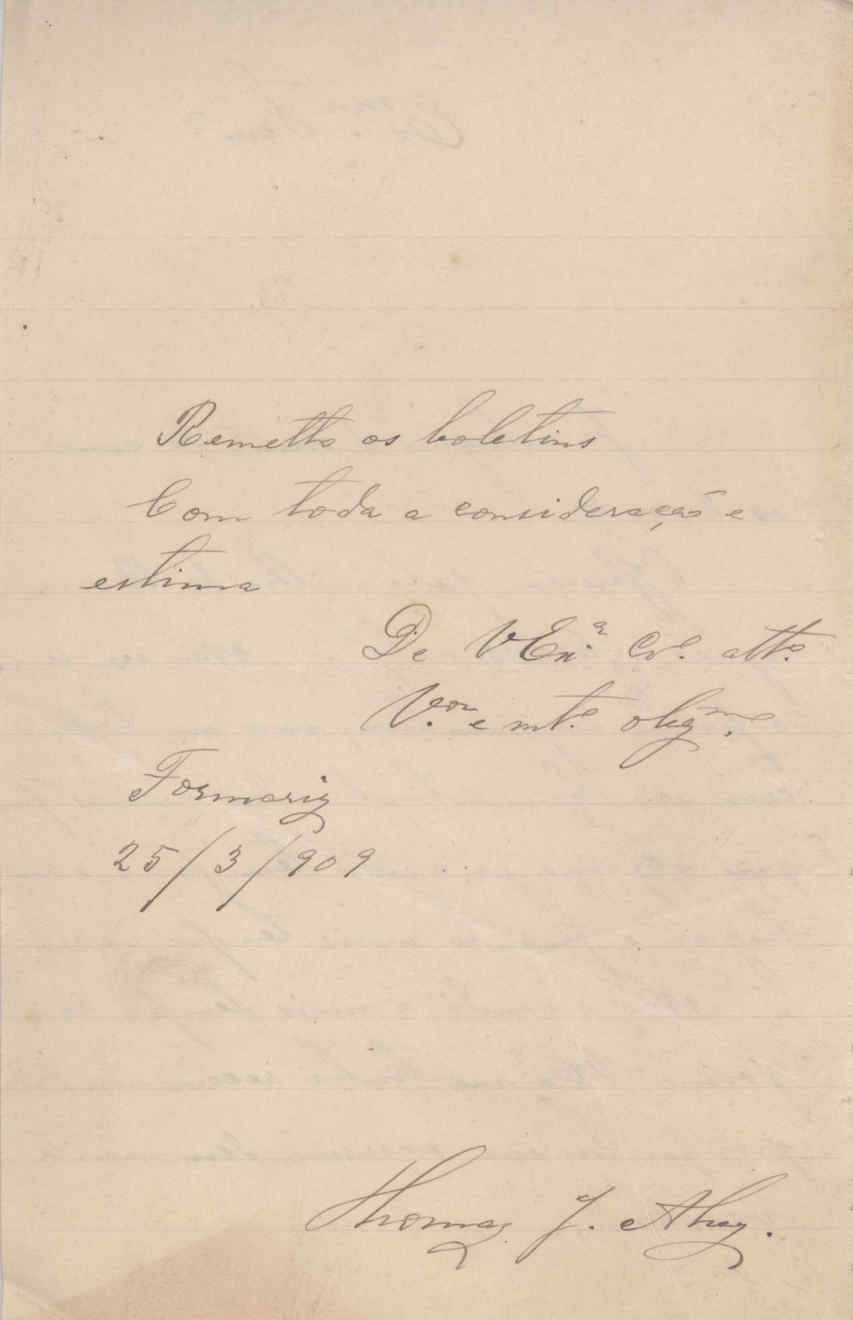 Remetto os boletins
Com toda a consideração e
estima
De V Ex.ª Cr.º att.º
V.or e mt.º obg.mo
Formariz
25/3/909
Thomaz J.